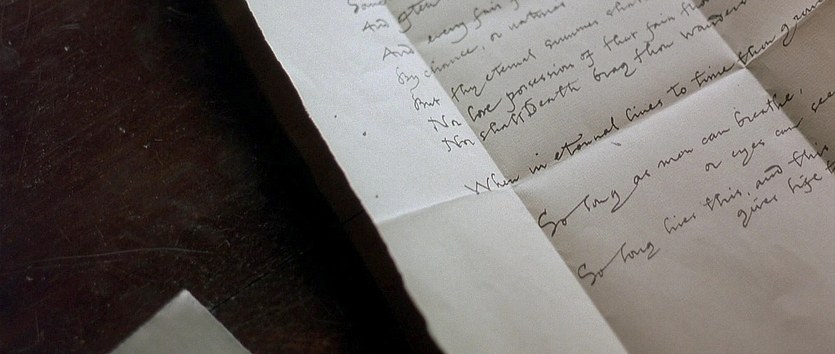 Some
And often
And every fair f
By chance, or nature's
But thy eternal summer shall
Nor lose possession of that fair
Nor shall Death brag thou wander's
When in eternal lines to time thou grow
So long as men can breathe,
or eyes can see
So long lives this, and this
gives life t